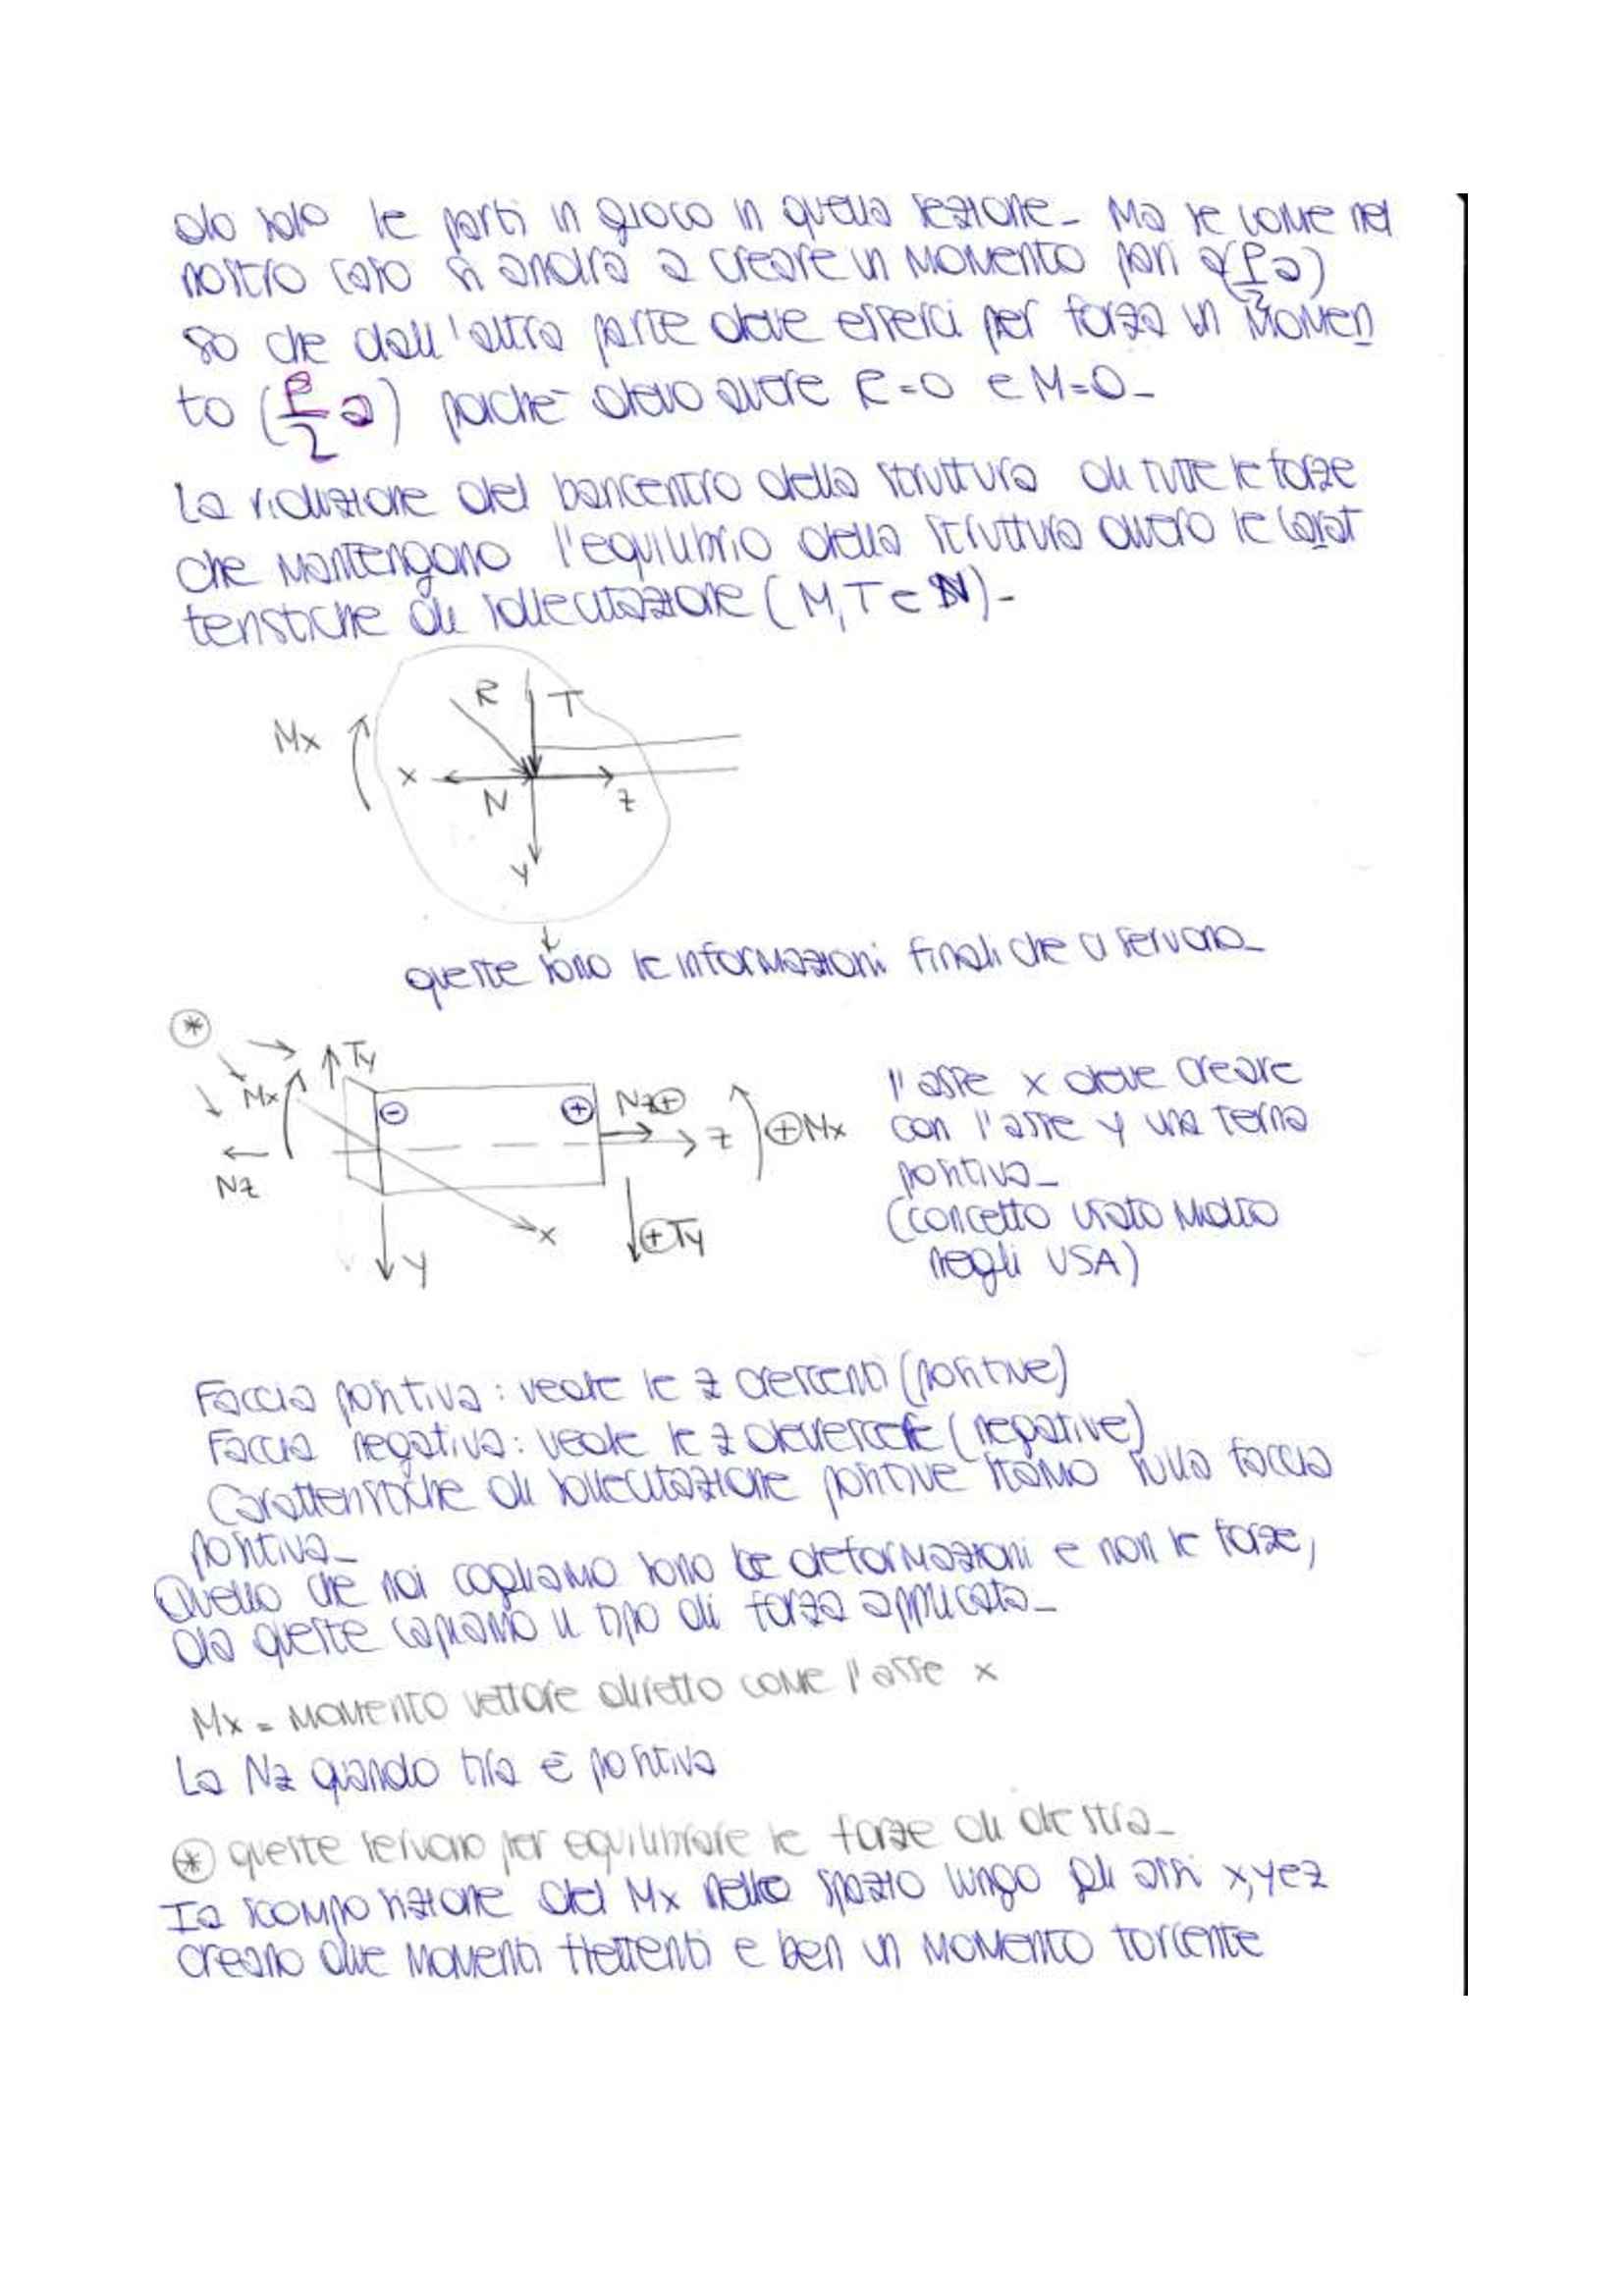 do solo le parti in gioco in quella sezione_ Ma se come nel
nostro caso si andrà a creare un momento pari a (P/2 a)
so che dall'altra parte deve esserci per forza un momen
to (P/2 a) poiché devo avere R=0 e M=0_
La riduzione del baricentro della struttura di tutte le forze
che mantengono l'equilibrio della struttura ovvero le carat
teristiche di sollecitazione (M, T e N)_
R
T
Mx
x
N
z
y
queste sono le informazioni finali che ci servono_
*
Ty
Mx
Nz
⊖
⊕
Nz⊕
z
⊕Mx
x
⊕Ty
y
l'asse x deve creare
con l'asse y una terna
positiva_
(concetto usato molto
negli USA)
Faccia positiva: vede le z crescenti (positive)
Faccia negativa: vede le z (negative)
Caratteristiche di sollecitazione positive stanno sulla faccia
positiva_
Quello che noi cogliamo sono le deformazioni e non le forze,
da queste capiamo il tipo di forza applicata_
Mx = momento vettore diretto come l'asse x
La Nz quando tira è positiva
* queste servono per equilibrare le forze di destra_
La scomposizione del Mx nello spazio lungo gli assi x, y e z
creano due momenti flettenti e ben un momento torcente